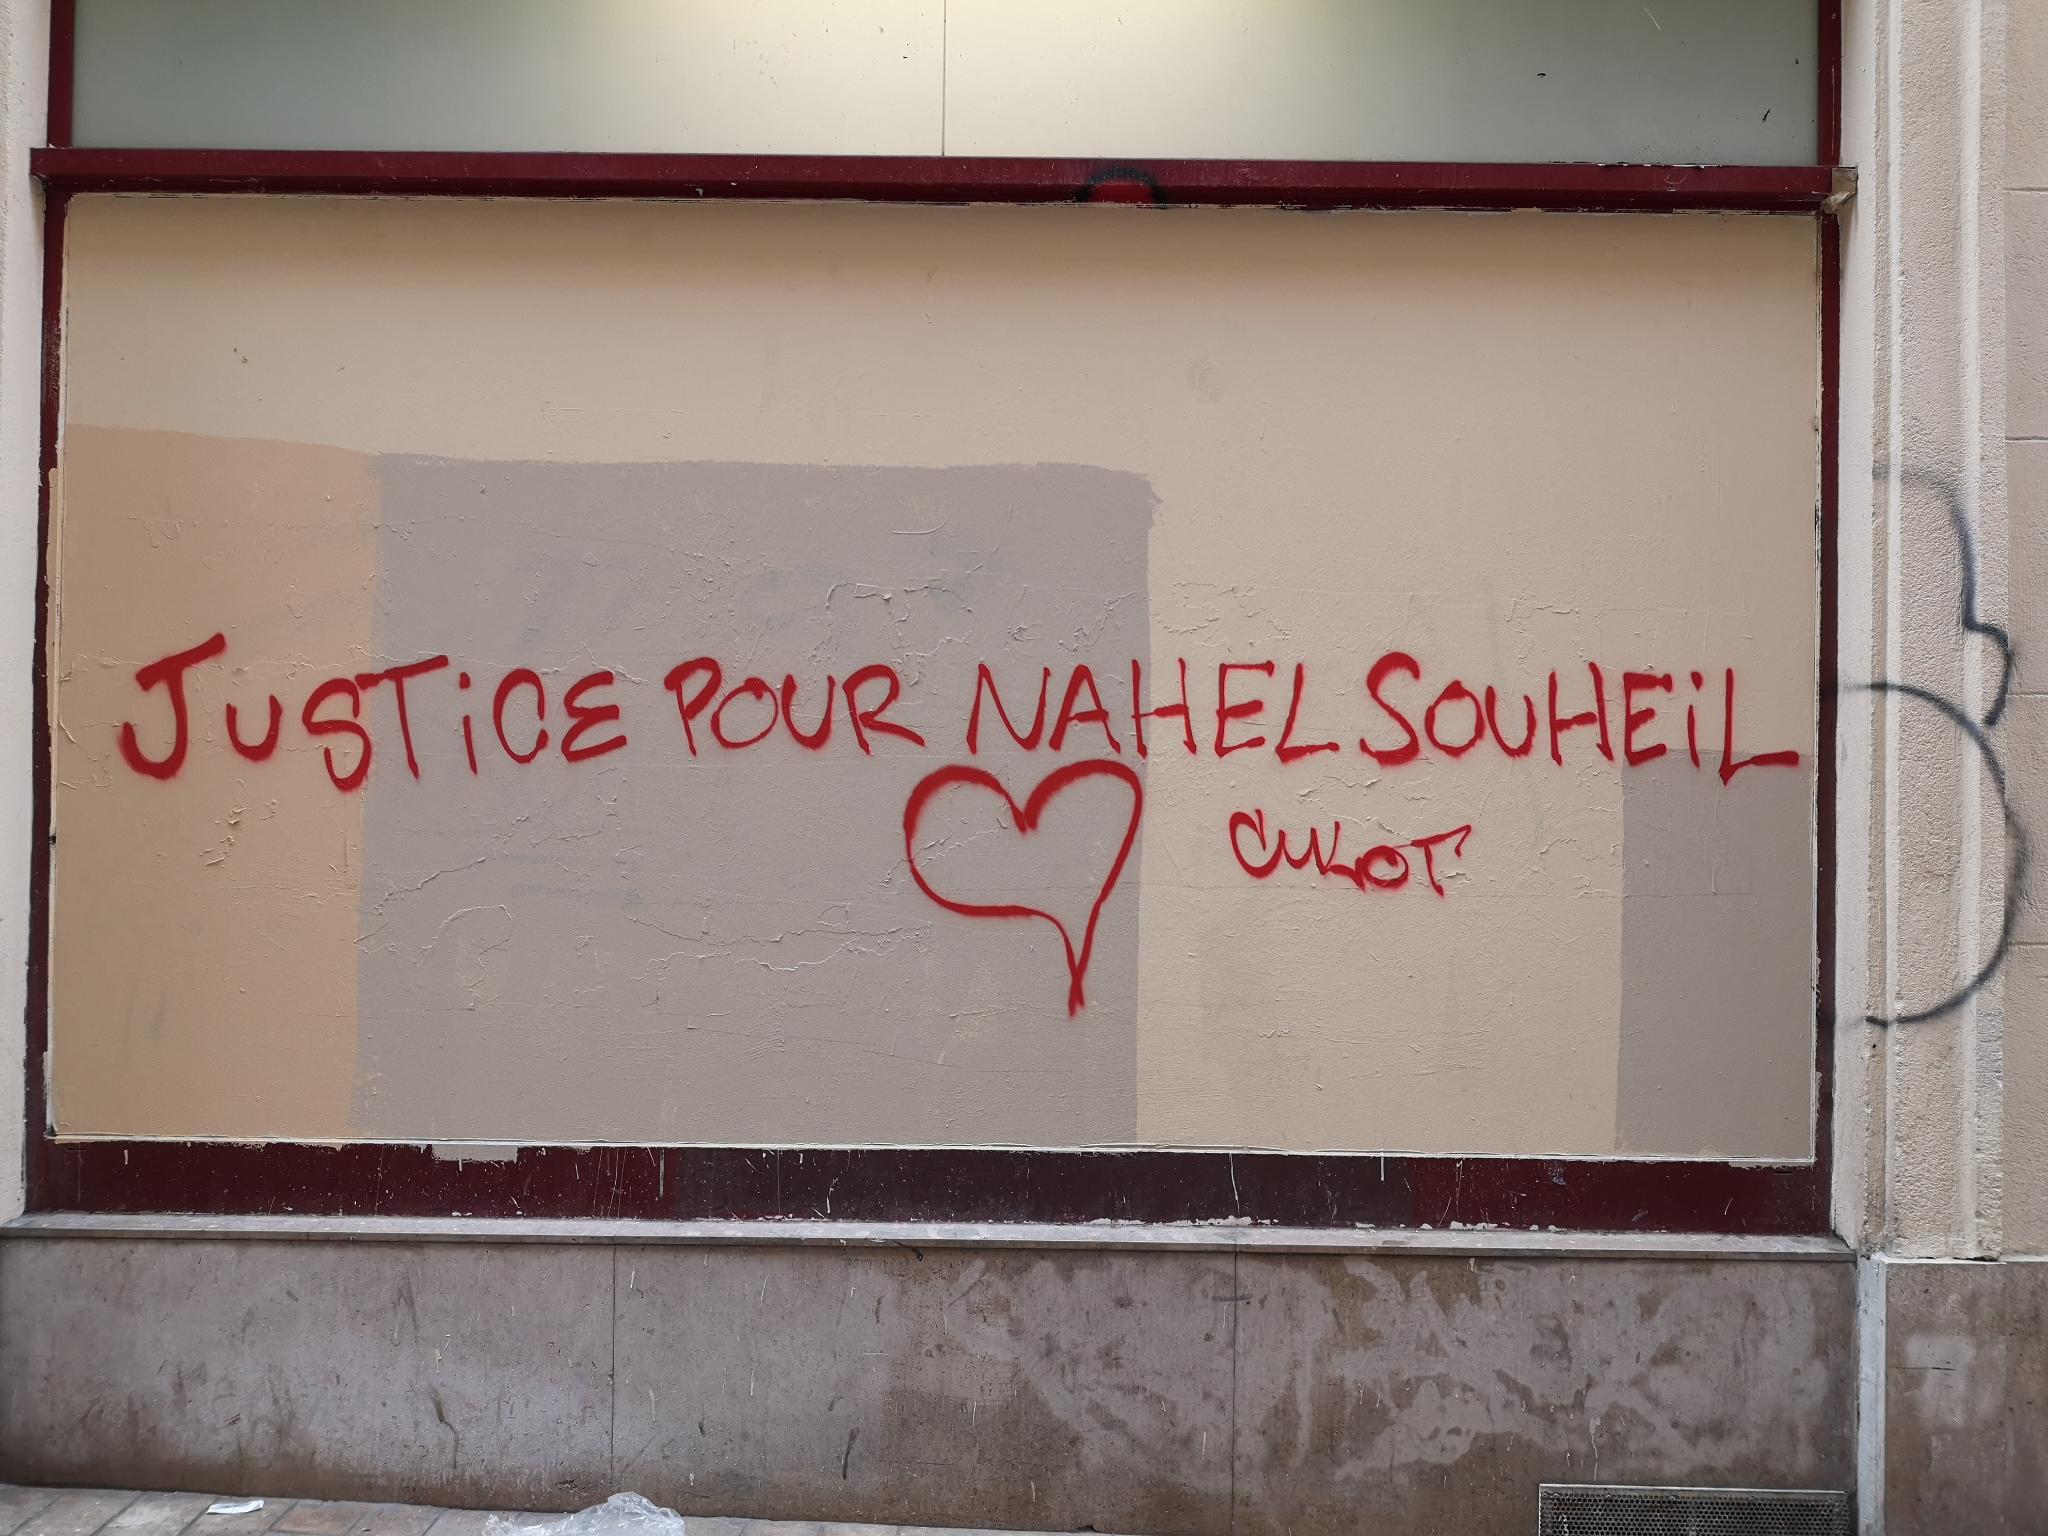 JUSTiCE POUR NAHEL SOUHEiL
CULOT